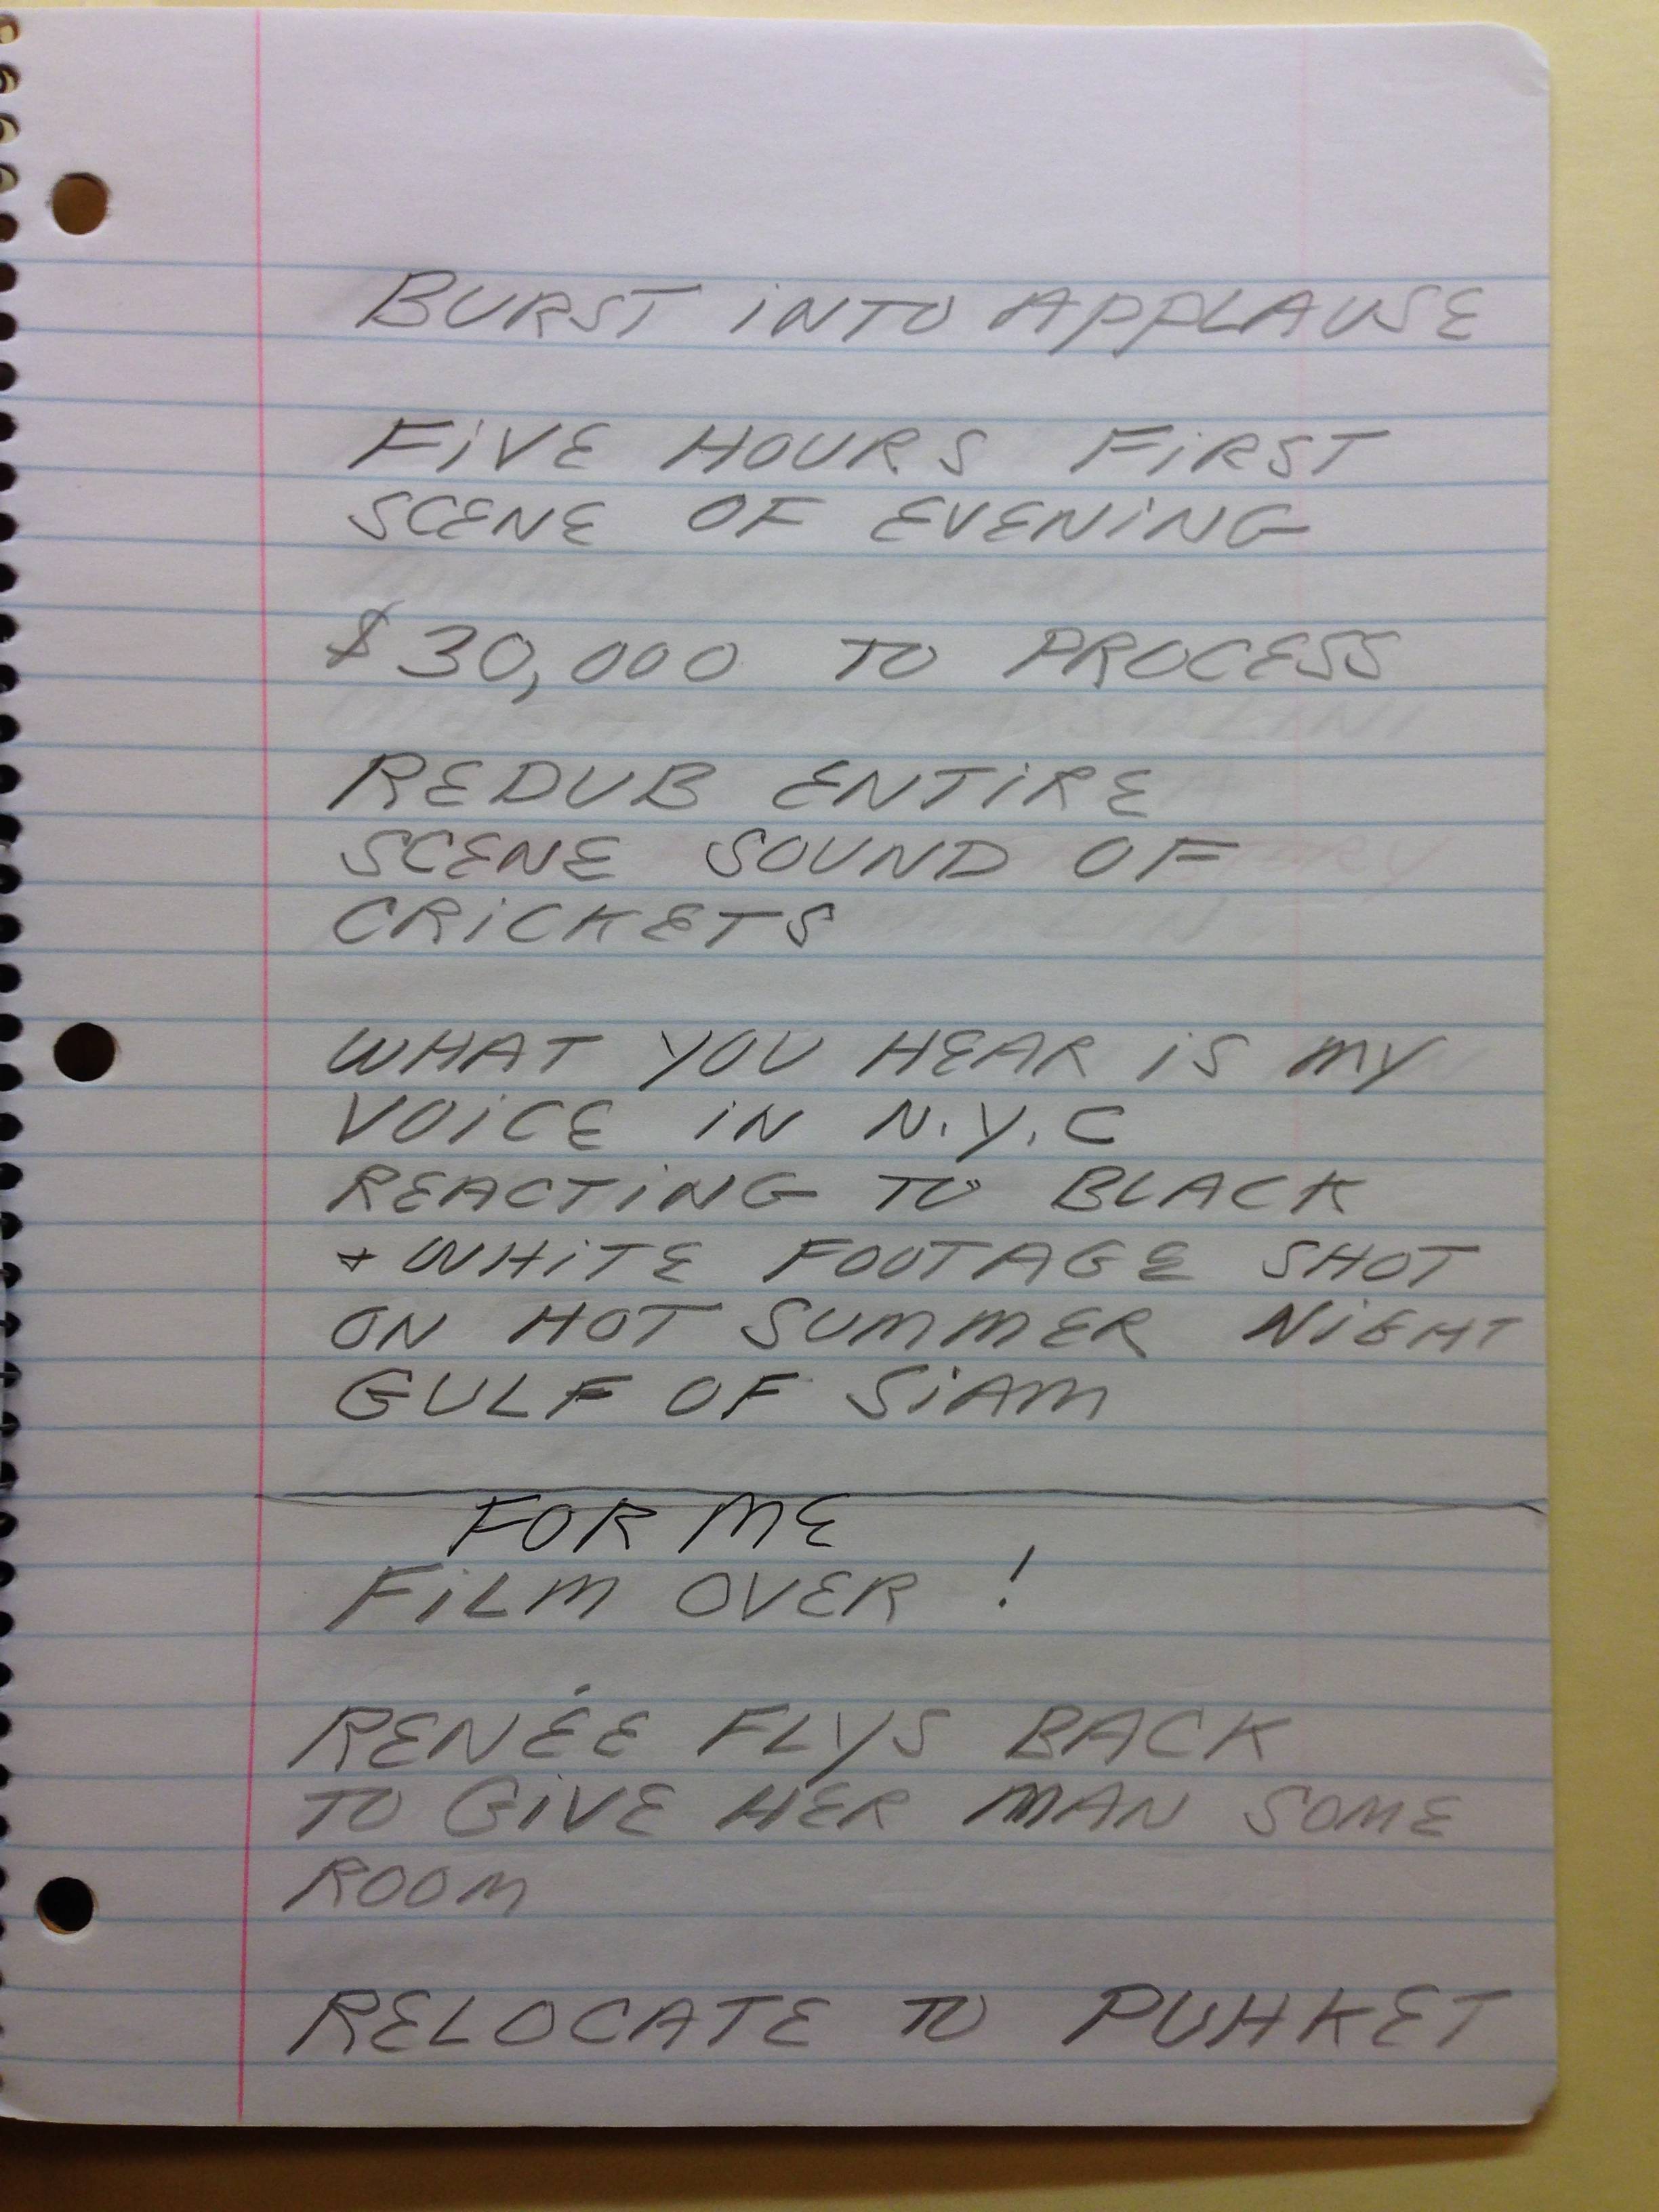 BURST INTO APPLAUSE
FIVE HOURS FIRST
SCENE OF EVENING
$30,000 TO PROCESS
REDUB ENTIRE
SCENE SOUND OF
CRICKETS
WHAT YOU HEAR IS MY
VOICE IN N.Y.C
REACTING TO BLACK
+ WHITE FOOTAGE SHOT
ON HOT SUMMER NIGHT
GULF OF SIAM
FOR ME
FILM OVER !
RENÉE FLYS BACK
TO GIVE HER MAN SOME
ROOM
RELOCATE TO PUHKET